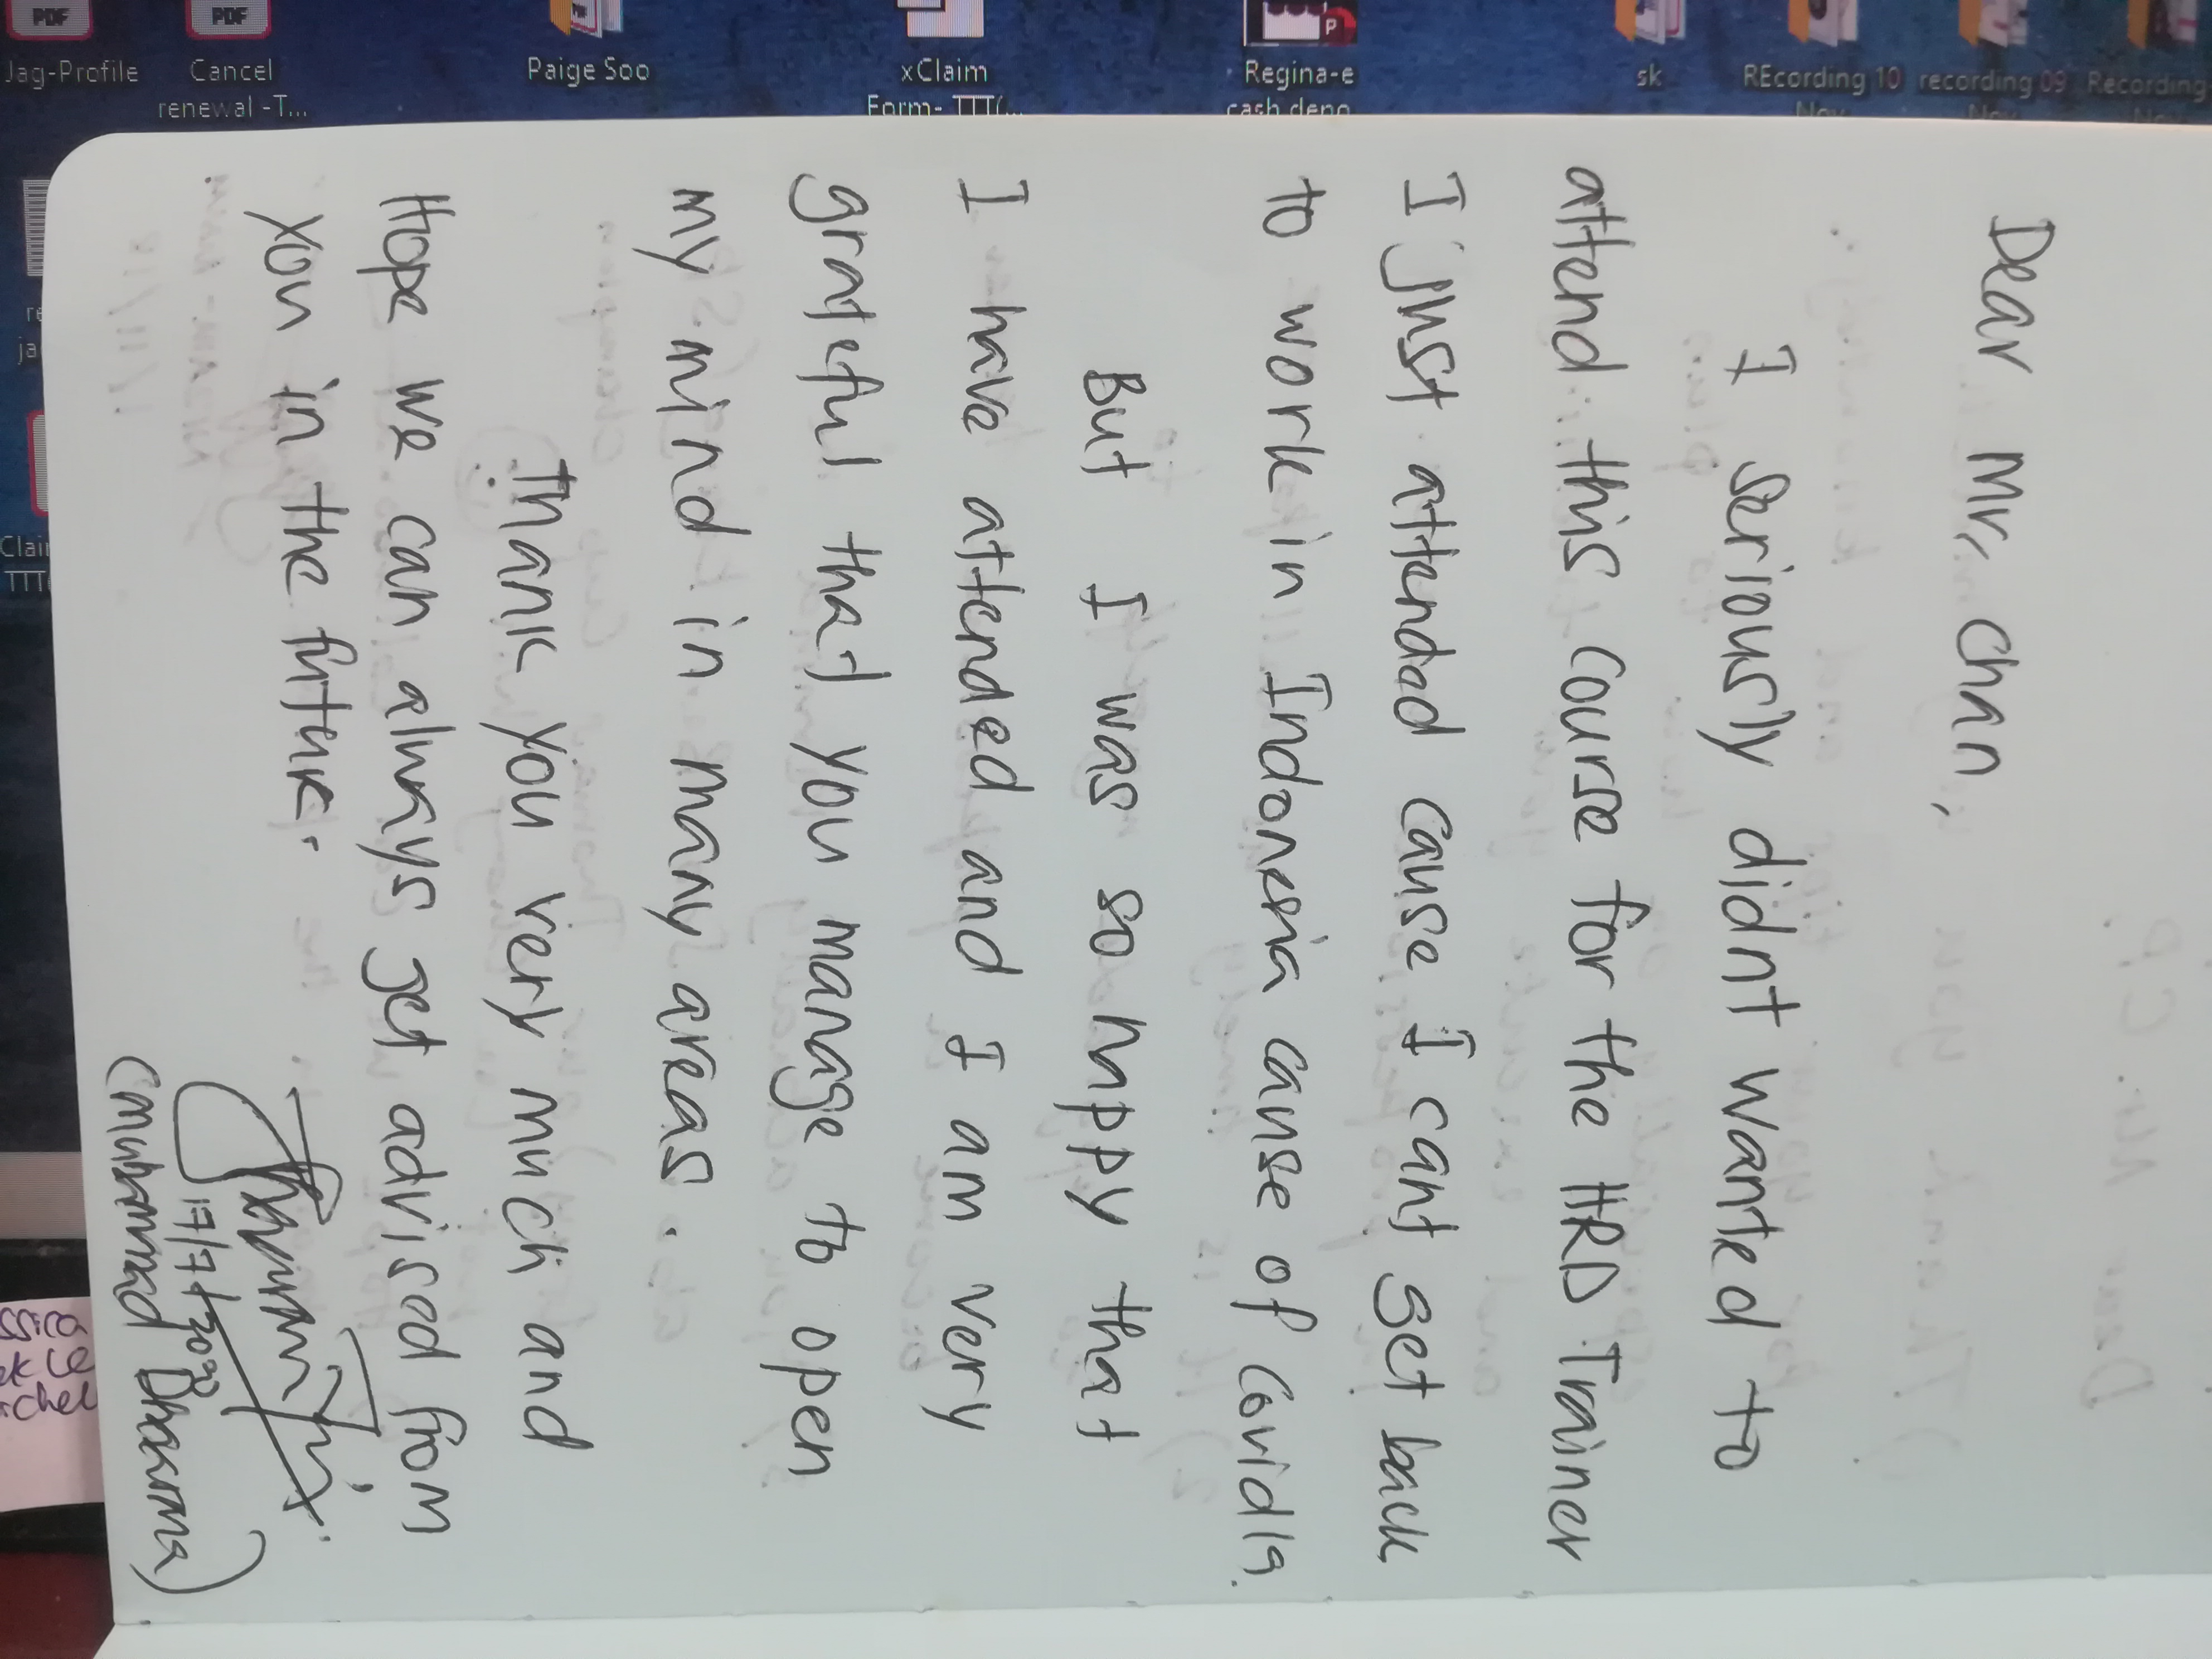 Jag-Profile
Cancel
renewal -T...
Paige Soo
xClaim
Form- TTT(...
Regina-e
cash deno
sk
REcording 10
Nov
recording 09
Nov
Recording
Dear Mr, Chan,
I seriously didnt wanted to
attend this course for the HRD Trainer
I just attended cause I cant get back
to work in Indonesia cause of Covid19.
But I was so happy that
I have attended and I am very
grateful that you manage to open
my mind in many areas.
Thank you very much and
Hope we can always get advised from
you in the future.
17/7/2022
(Muhammad Dhasrma)